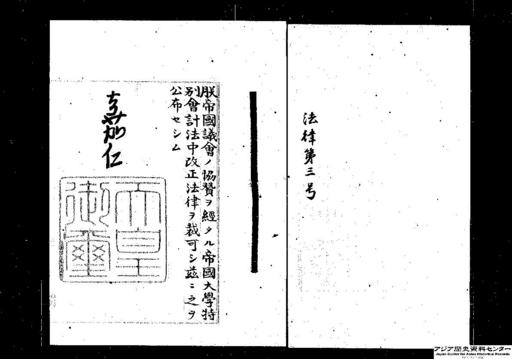 法律第三号
朕帝國議會ノ協贊ヲ經タル帝國大學特
別會計法中改正法律ヲ裁可シ茲ニ之ヲ
公布セシム
嘉仁
天皇
御璽
アジア歴史資料センター
Japan Center for Asian Historical Records